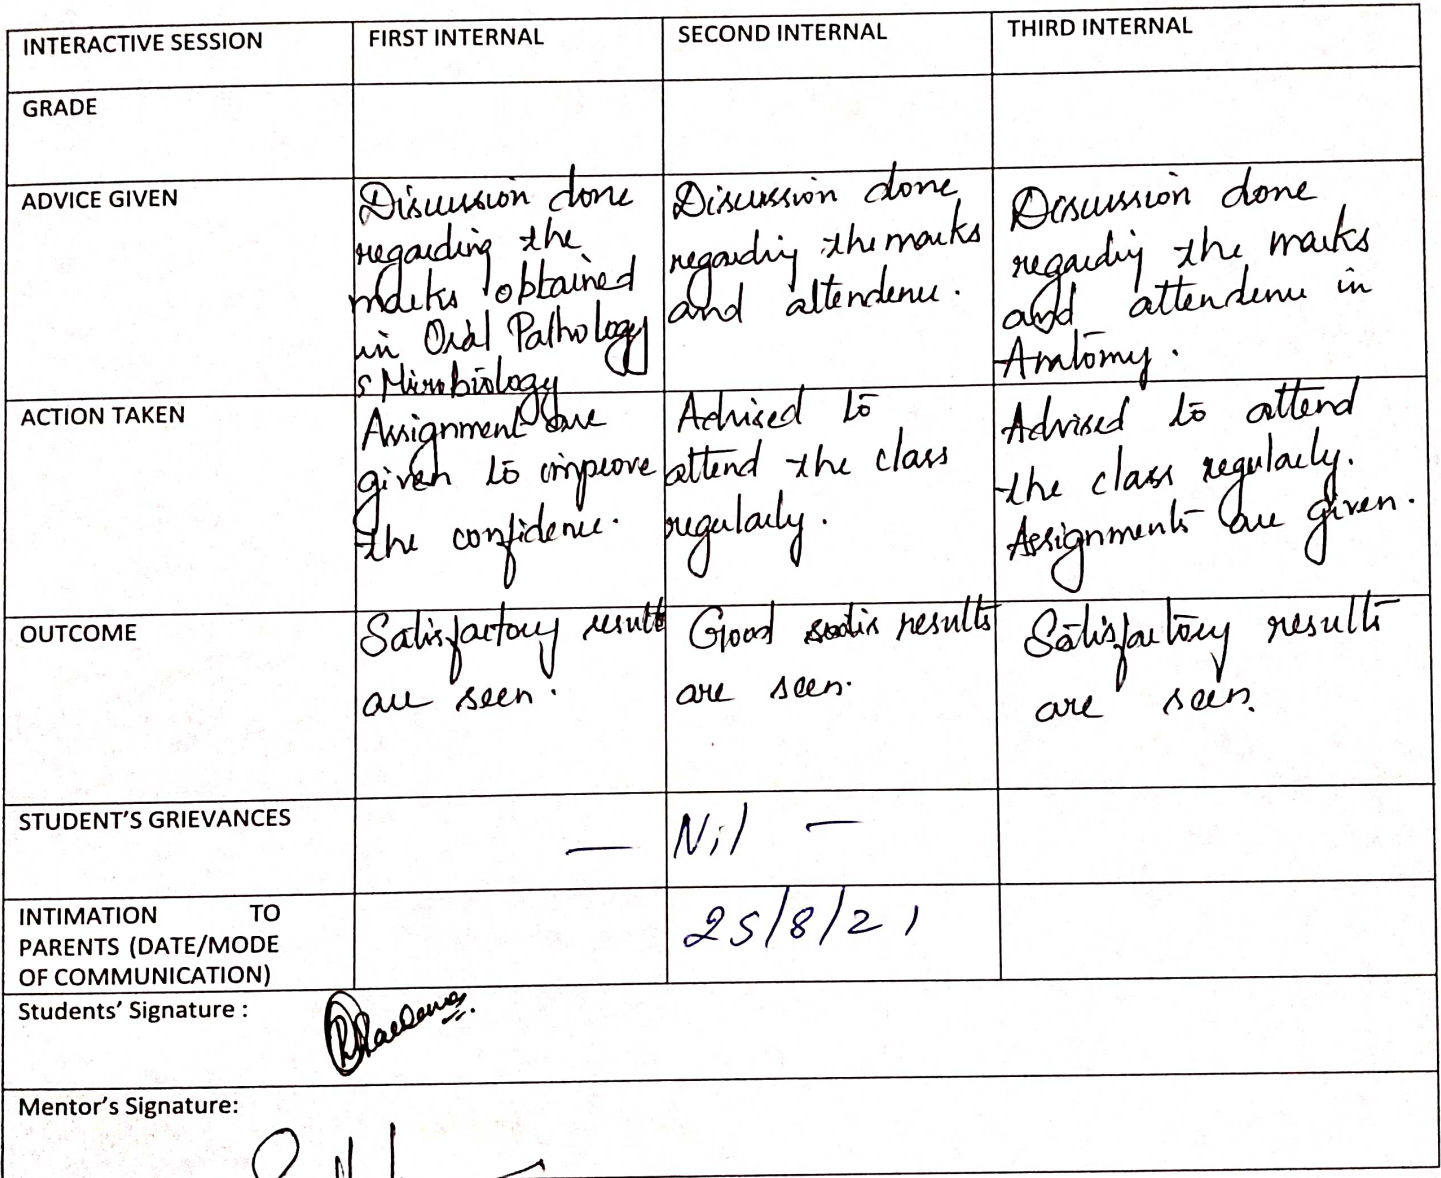 INTERACTIVE SESSION
FIRST INTERNAL
SECOND INTERNAL
THIRD INTERNAL
GRADE
ADVICE GIVEN
Discussion done
regarding the
marks obtained
in Oral Pathology
& Microbiology
Discussion done
regarding the marks
and attendence.
Discussion done
regarding the marks
and attendence in
Anatomy.
ACTION TAKEN
Assignment are
given to improve
the confidence.
Advised to
attend the class
regularly.
Advised to attend
the class regularly.
Assignments are given.
OUTCOME
Satisfactory results
are seen.
Good results
are seen.
Satisfactory results
are seen.
STUDENT'S GRIEVANCES
— Nil —
INTIMATION TO
PARENTS (DATE/MODE
OF COMMUNICATION)
25/8/21
Students' Signature :
Mentor's Signature: